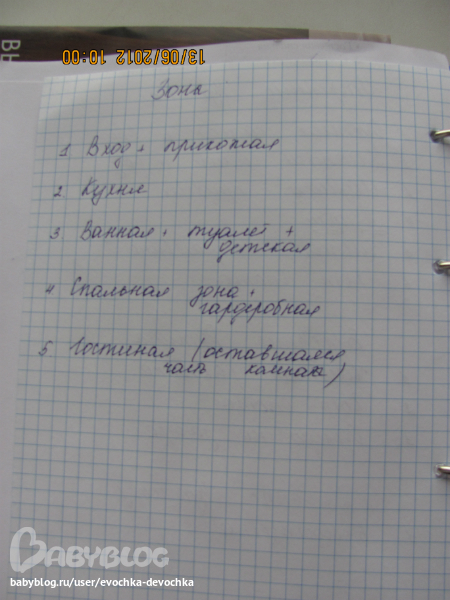 13/06/2012 10:00
Зоны
1 Вход + прихожая
2 Кухня
3 Ванная + туалет +
детская
4 Спальная зона +
гардеробная
5 Гостиная (оставшаяся
часть комнаты)
BABYBLOG
babyblog.ru/user/evochka-devochka